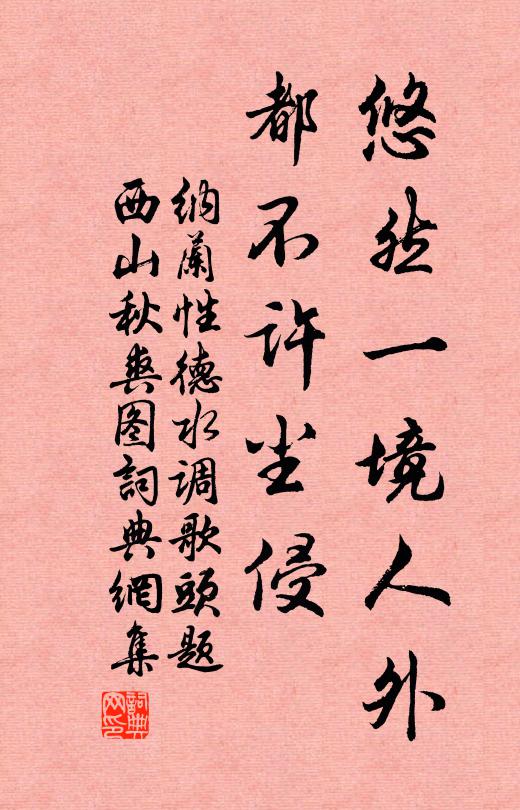 悠然一境人外
都不许尘侵
纳蘭性德水调歌頭题
西山秋爽图詞典網集
詞典网印